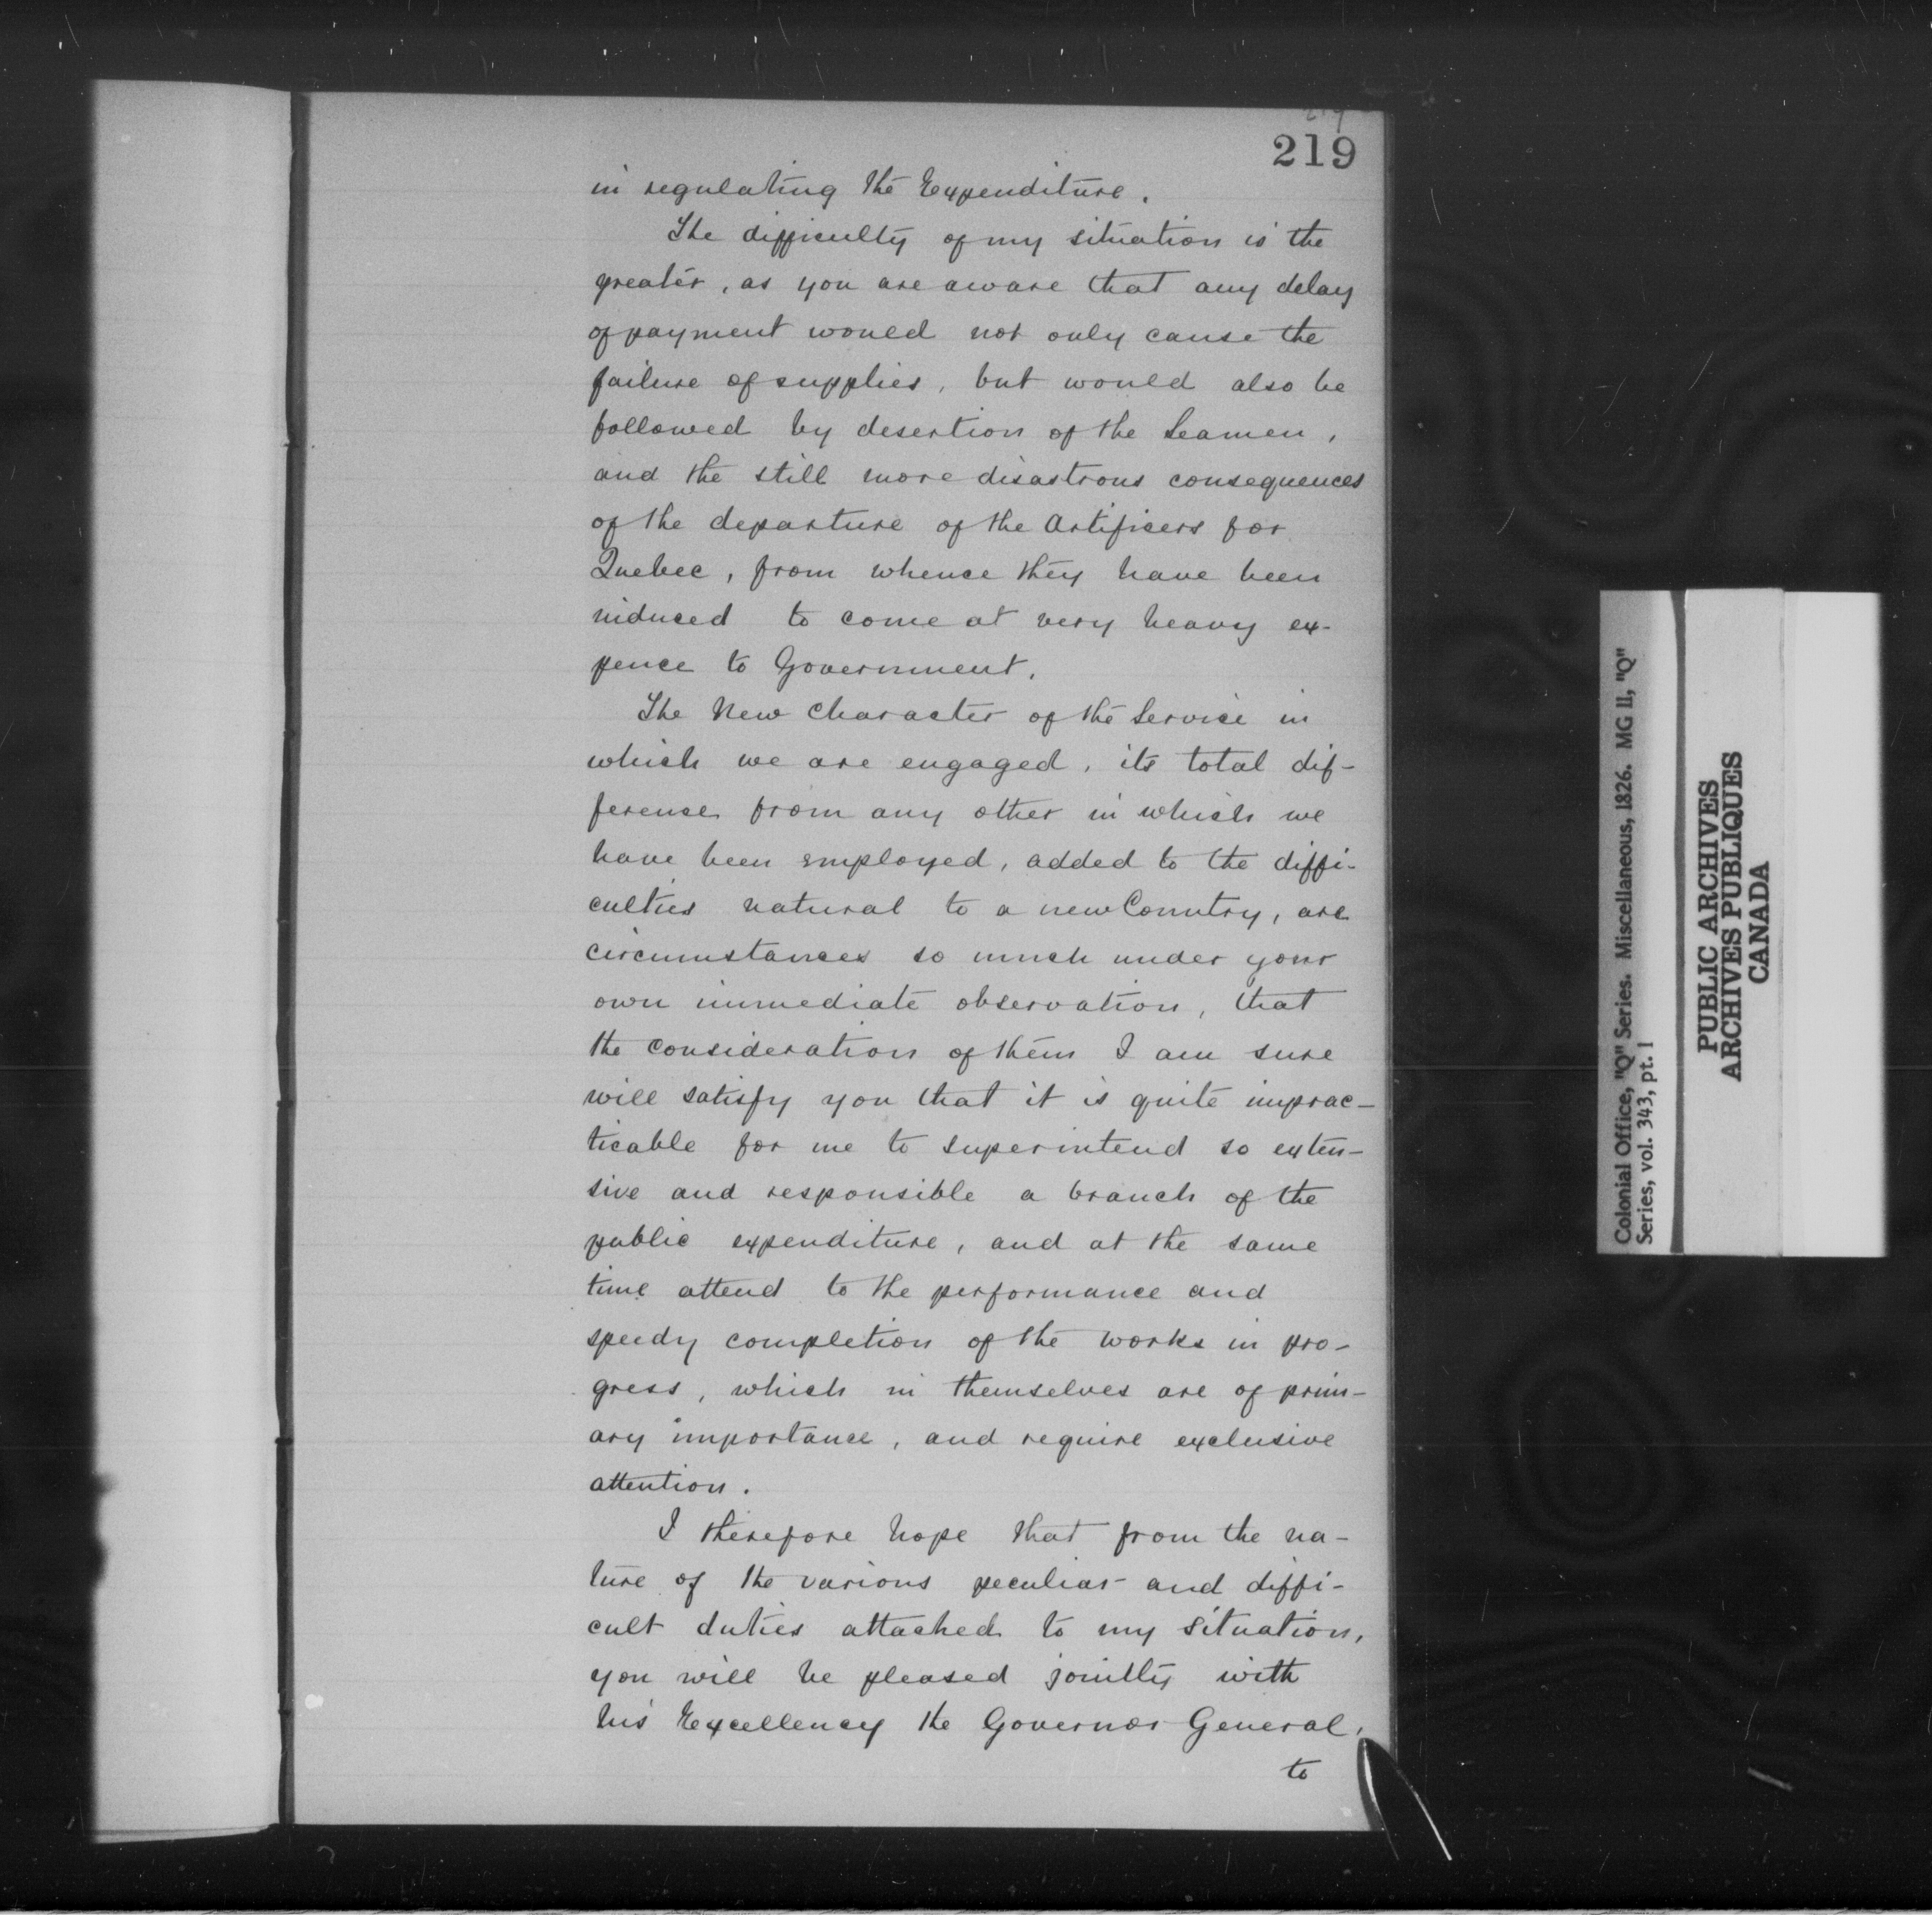 219
in regulating the Expenditure.
The difficulty of my situation is the
greater, as you are aware that any delay
of payment would not only cause the
failure of supplies, but would also be
followed by desertion of the Seamen,
and the still more disastrous consequences
of the departure of the Artificers for
Quebec, from whence they have been
induced to come at very heavy ex-
pence to Government.
The New Character of the Service in
which we are engaged, its total dif-
ference from any other in which we
have been employed, added to the diffi-
culties natural to a new Country, are
circumstances so much under your
own immediate observation, that
the consideration of them I am sure
will satisfy you that it is quite imprac-
ticable for me to superintend so exten-
sive and responsible a branch of the
public expenditure, and at the same
time attend to the performance and
speedy completion of the works in pro-
gress, which in themselves are of prim-
ary importance, and require exclusive
attention.
I therefore hope that from the na-
ture of the various peculiar and diffi-
cult duties attached to my situation,
you will be pleased jointly with
his Excellency the Governor General,
to
Colonial Office, "Q" Series. Miscellaneous, 1826. MG 11, "Q"
Series, vol. 343, pt. 1
PUBLIC ARCHIVES
ARCHIVES PUBLIQUES
CANADA